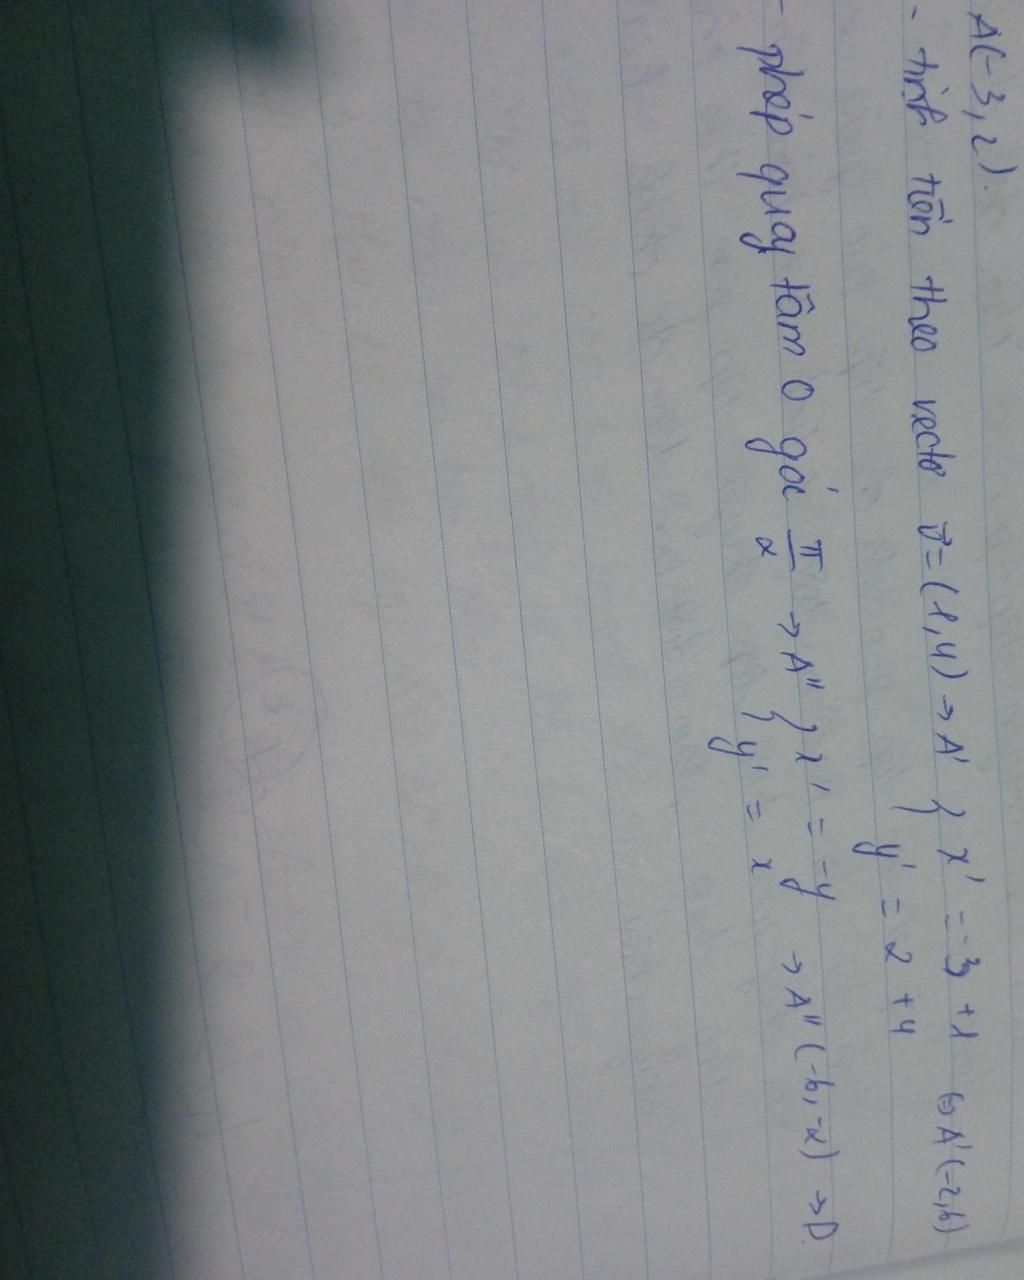 A(-3,2).
- tịnh tiến theo vectơ v⃗=(1,4) → A' { x' = -3 + 1 ⇔ A'(-2,6)
y' = 2 + 4
- phép quay tâm O góc π/2 → A'' { x' = -y → A''(-6,-2) → D.
y' = x